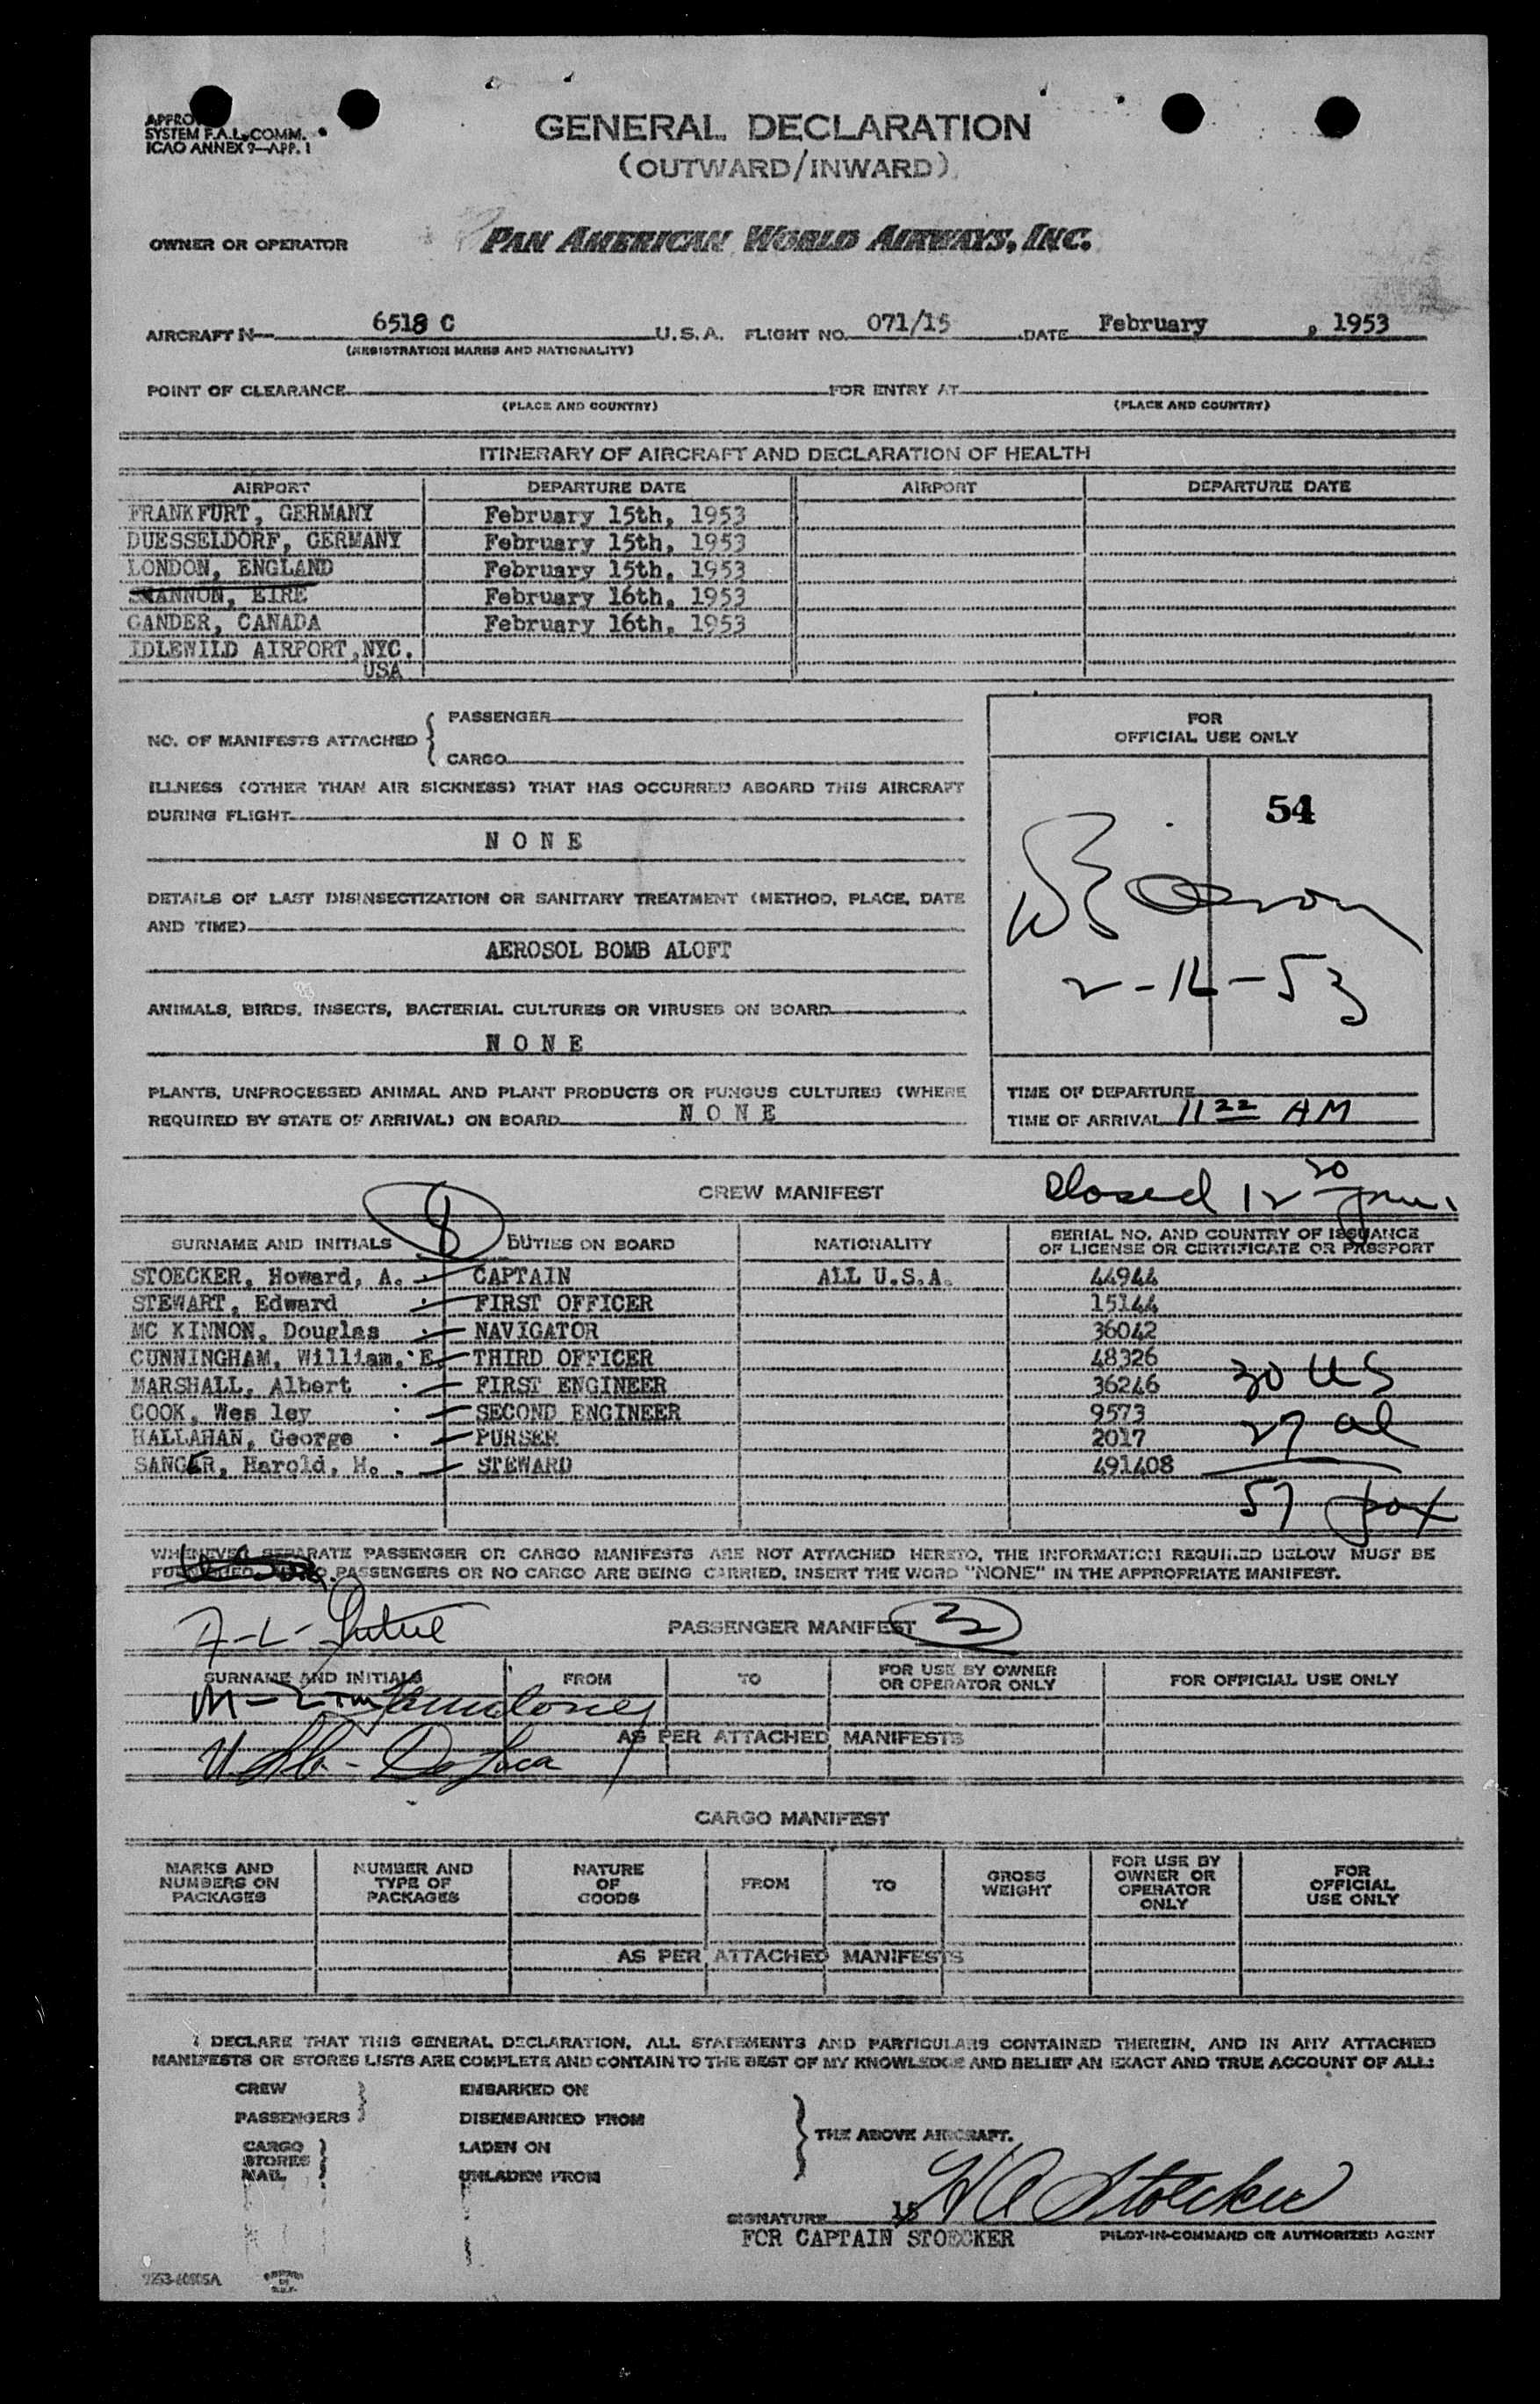 SYSTEM F.A.L. COMM.
ICAO ANNEX 9—APP. 1
GENERAL DECLARATION
(OUTWARD/INWARD)
OWNER OR OPERATOR PAN AMERICAN WORLD AIRWAYS, INC.
AIRCRAFT N— 6518 C U.S.A. FLIGHT NO. 071/15 DATE February , 1953
(REGISTRATION MARKS AND NATIONALITY)
POINT OF CLEARANCE FOR ENTRY AT
(PLACE AND COUNTRY) (PLACE AND COUNTRY)
ITINERARY OF AIRCRAFT AND DECLARATION OF HEALTH
AIRPORT DEPARTURE DATE AIRPORT DEPARTURE DATE
FRANKFURT, GERMANY February 15th, 1953
DUESSELDORF, GERMANY February 15th, 1953
LONDON, ENGLAND February 15th, 1953
SHANNON, EIRE February 16th, 1953
GANDER, CANADA February 16th, 1953
IDLEWILD AIRPORT, NYC.
USA
NO. OF MANIFESTS ATTACHED { PASSENGER
CARGO
ILLNESS (OTHER THAN AIR SICKNESS) THAT HAS OCCURRED ABOARD THIS AIRCRAFT
DURING FLIGHT
N O N E
DETAILS OF LAST DISINSECTIZATION OR SANITARY TREATMENT (METHOD, PLACE, DATE
AND TIME)
AEROSOL BOMB ALOFT
ANIMALS, BIRDS, INSECTS, BACTERIAL CULTURES OR VIRUSES ON BOARD
N O N E
PLANTS, UNPROCESSED ANIMAL AND PLANT PRODUCTS OR FUNGUS CULTURES (WHERE
REQUIRED BY STATE OF ARRIVAL) ON BOARD N O N E
FOR
OFFICIAL USE ONLY
54
2-16-53
TIME OF DEPARTURE
TIME OF ARRIVAL 11 22 AM
CREW MANIFEST
Closed 12 30 pm.
8
SURNAME AND INITIALS DUTIES ON BOARD NATIONALITY SERIAL NO. AND COUNTRY OF ISSUANCE
OF LICENSE OR CERTIFICATE OR PASSPORT
STOECKER, Howard, A. CAPTAIN ALL U.S.A. 44944
STEWART, Edward FIRST OFFICER 15144
MC KINNON, Douglas NAVIGATOR 36042
CUNNINGHAM, William. E. THIRD OFFICER 48326
MARSHALL, Albert FIRST ENGINEER 36246
COOK, Wes ley SECOND ENGINEER 9573
HALLAHAN, George PURSER 2017
SANGER, Harold, H. STEWARD 491408
30 US
27 al
57 pax
WHENEVER SEPARATE PASSENGER OR CARGO MANIFESTS ARE NOT ATTACHED HERETO, THE INFORMATION REQUIRED BELOW MUST BE
PASSENGERS OR NO CARGO ARE BEING CARRIED, INSERT THE WORD "NONE" IN THE APPROPRIATE MANIFEST.
PASSENGER MANIFEST 3
SURNAME AND INITIALS FROM TO FOR USE BY OWNER
OR OPERATOR ONLY FOR OFFICIAL USE ONLY
AS PER ATTACHED MANIFESTS
CARGO MANIFEST
MARKS AND
NUMBERS ON
PACKAGES
NUMBER AND
TYPE OF
PACKAGES
NATURE
OF
GOODS
FROM
TO
GROSS
WEIGHT
FOR USE BY
OWNER OR
OPERATOR
ONLY
FOR
OFFICIAL
USE ONLY
AS PER ATTACHED MANIFESTS
I DECLARE THAT THIS GENERAL DECLARATION, ALL STATEMENTS AND PARTICULARS CONTAINED THEREIN, AND IN ANY ATTACHED
MANIFESTS OR STORES LISTS ARE COMPLETE AND CONTAIN TO THE BEST OF MY KNOWLEDGE AND BELIEF AN EXACT AND TRUE ACCOUNT OF ALL:
CREW EMBARKED ON
PASSENGERS DISEMBARKED FROM
THE ABOVE AIRCRAFT.
CARGO LADEN ON
STORES
MAIL UNLADEN FROM
SIGNATURE H A Stoecker
FOR CAPTAIN STOECKER PILOT-IN-COMMAND OR AUTHORIZED AGENT